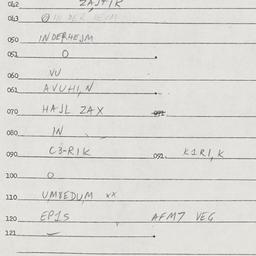 042 ZAJTIK
043 O IN DER HEIM
050 INDERHEJM
051 O
060 VU
061 AVUHI,N
070 HAJL ZAX 071
080 IN
090 C3-RIK 091. K1RI,K
100 O
110 UMXEDUM xx
120 EP1S AFM7 VEG
121